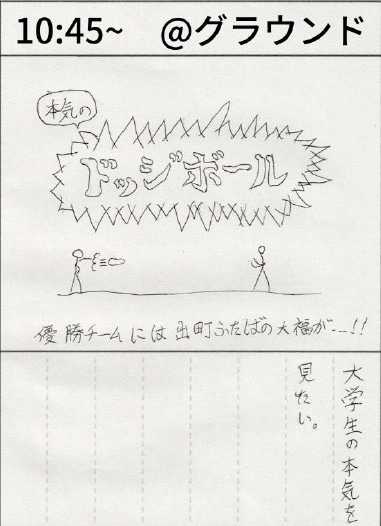 10:45~ @グラウンド
本気の
ドッジボール
優勝チームには出町ふたばの大福が...!!
大学生の本気を
見たい。